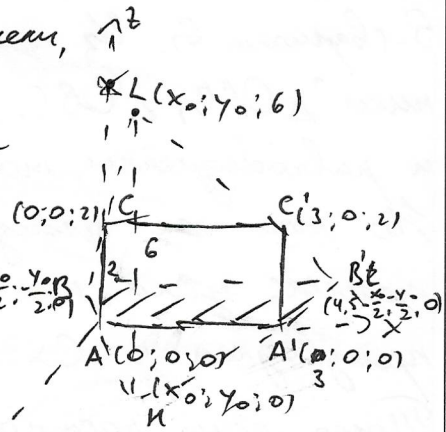 z
L (x₀; y₀; 6)
(0; 0; 2) C
C' (3; 0; 2)
6
2
B
B'
(4,5 - x₀/2; -y₀/2; 0)
-y₀/2; 0)
x
A (0; 0; 0)
A' (3; 0; 0)
(x₀; y₀; 0)
H